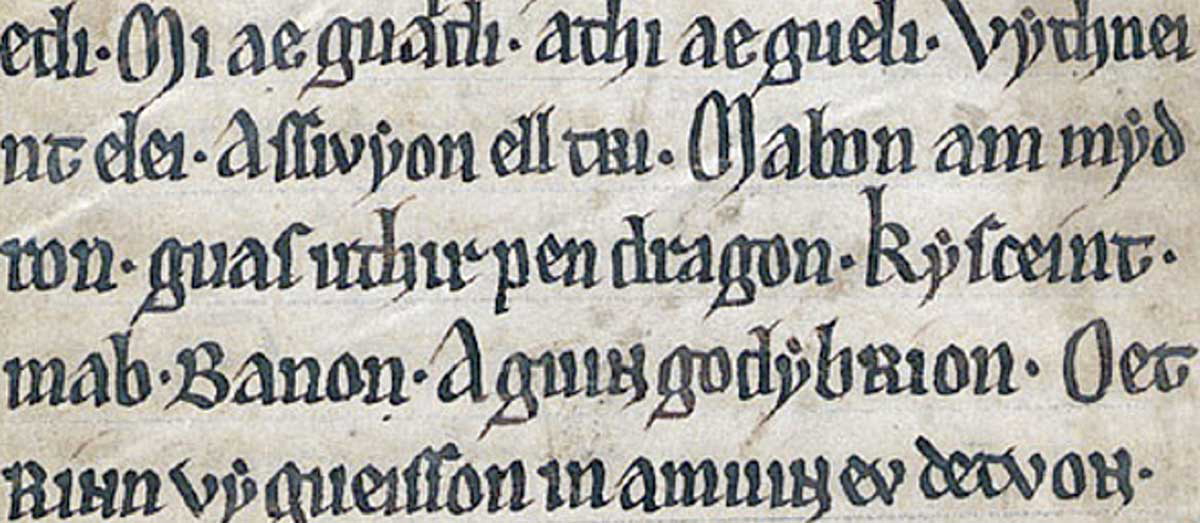 edi. Mi ae guardi. athi ae gueli. Vythnei
nt elei. Assivyon ell tri. Mabon am myd
ron. guas uthir pen dragon. Kysceint.
mab. Banon. A guin godybrion. Oet
rinn vy gueisson in amuin ev detvon.